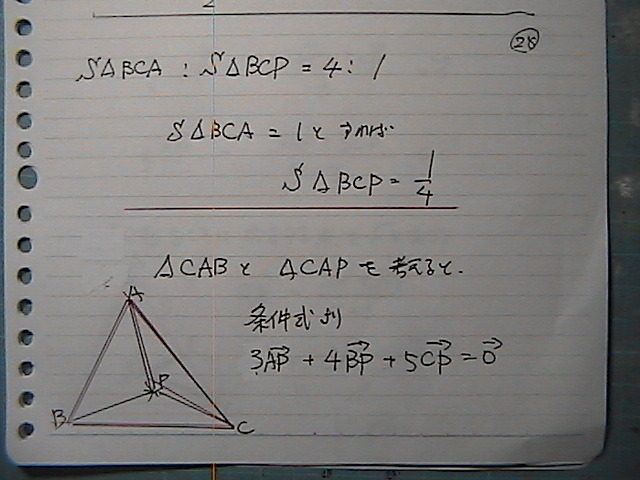 2
28
S△BCA : S△BCP = 4 : 1
S△BCA = 1 とすれば
S△BCP = 1/4
△CABと △CAPを考えると.
条件式より
3AP→ + 4BP→ + 5CP→ = 0→
A
P
B
C